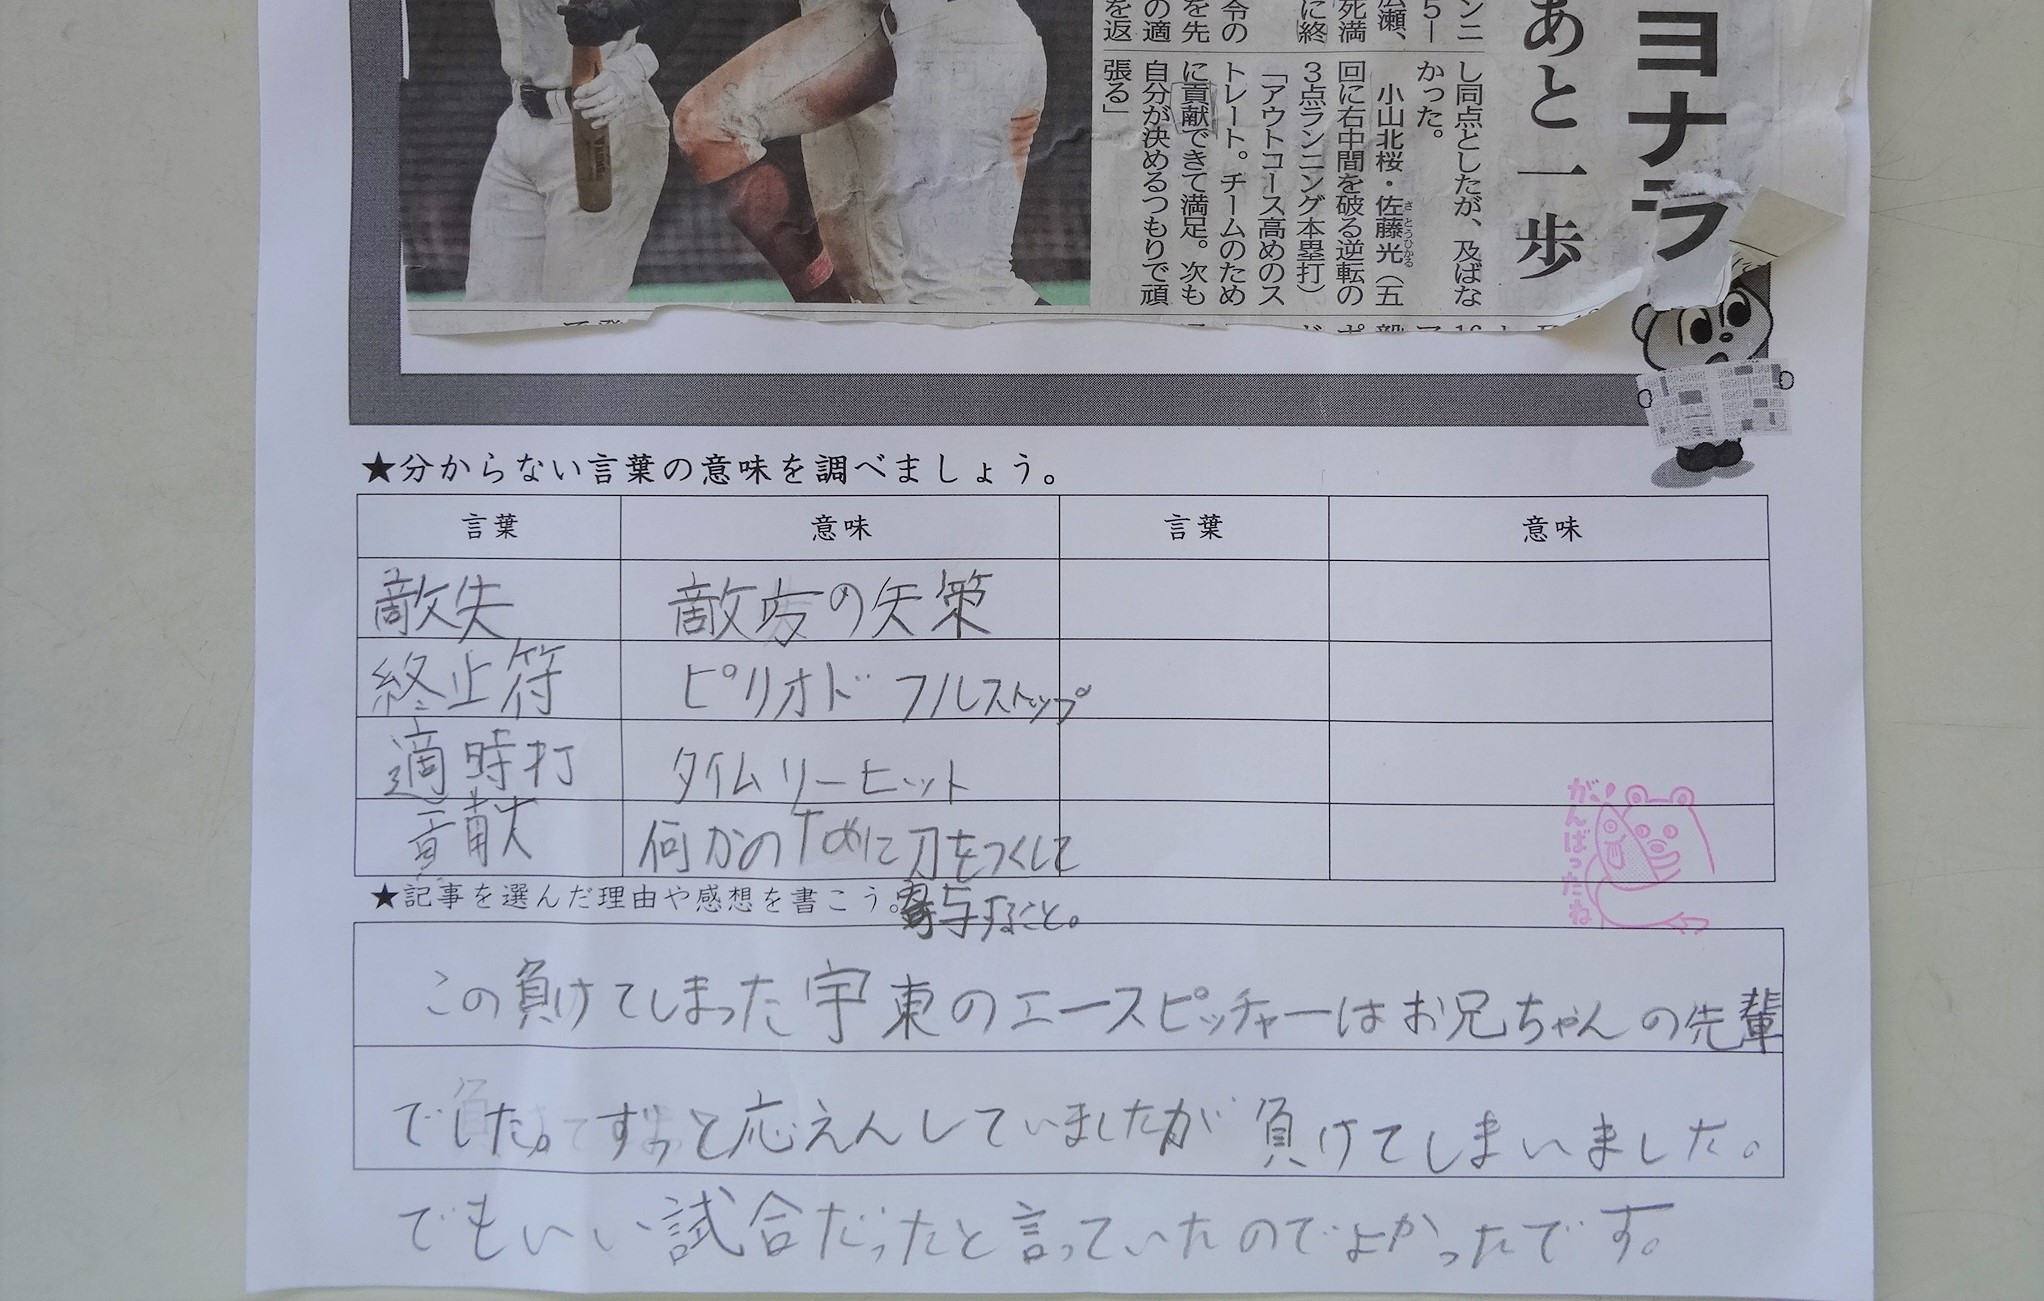 ヨナラ
あと一歩
ンニ
5ー
広瀬、
死満
に終
令の
を先
の適
を返
し同点としたが、及ばな
かった。
小山北桜・佐藤光(五
さとうひかる
回に右中間を破る逆転の
3点ランニング本塁打)
「アウトコース高めのス
トレート。チームのため
に貢献できて満足。次も
自分が決めるつもりで頑
張る」
★分からない言葉の意味を調べましょう。
言葉 意味 言葉 意味
敵失 敵方の失策
終止符 ピリオド フルストップ
適時打 タイムリーヒット
貢献 何かのために力をつくして
寄与すること。
がんばったね
★記事を選んだ理由や感想を書こう。
この負けてしまった宇東のエースピッチャーはお兄ちゃんの先輩
でした。ずっと応えんしていましたが負けてしまいました。
でもいい試合だったと言っていたのでよかったです。